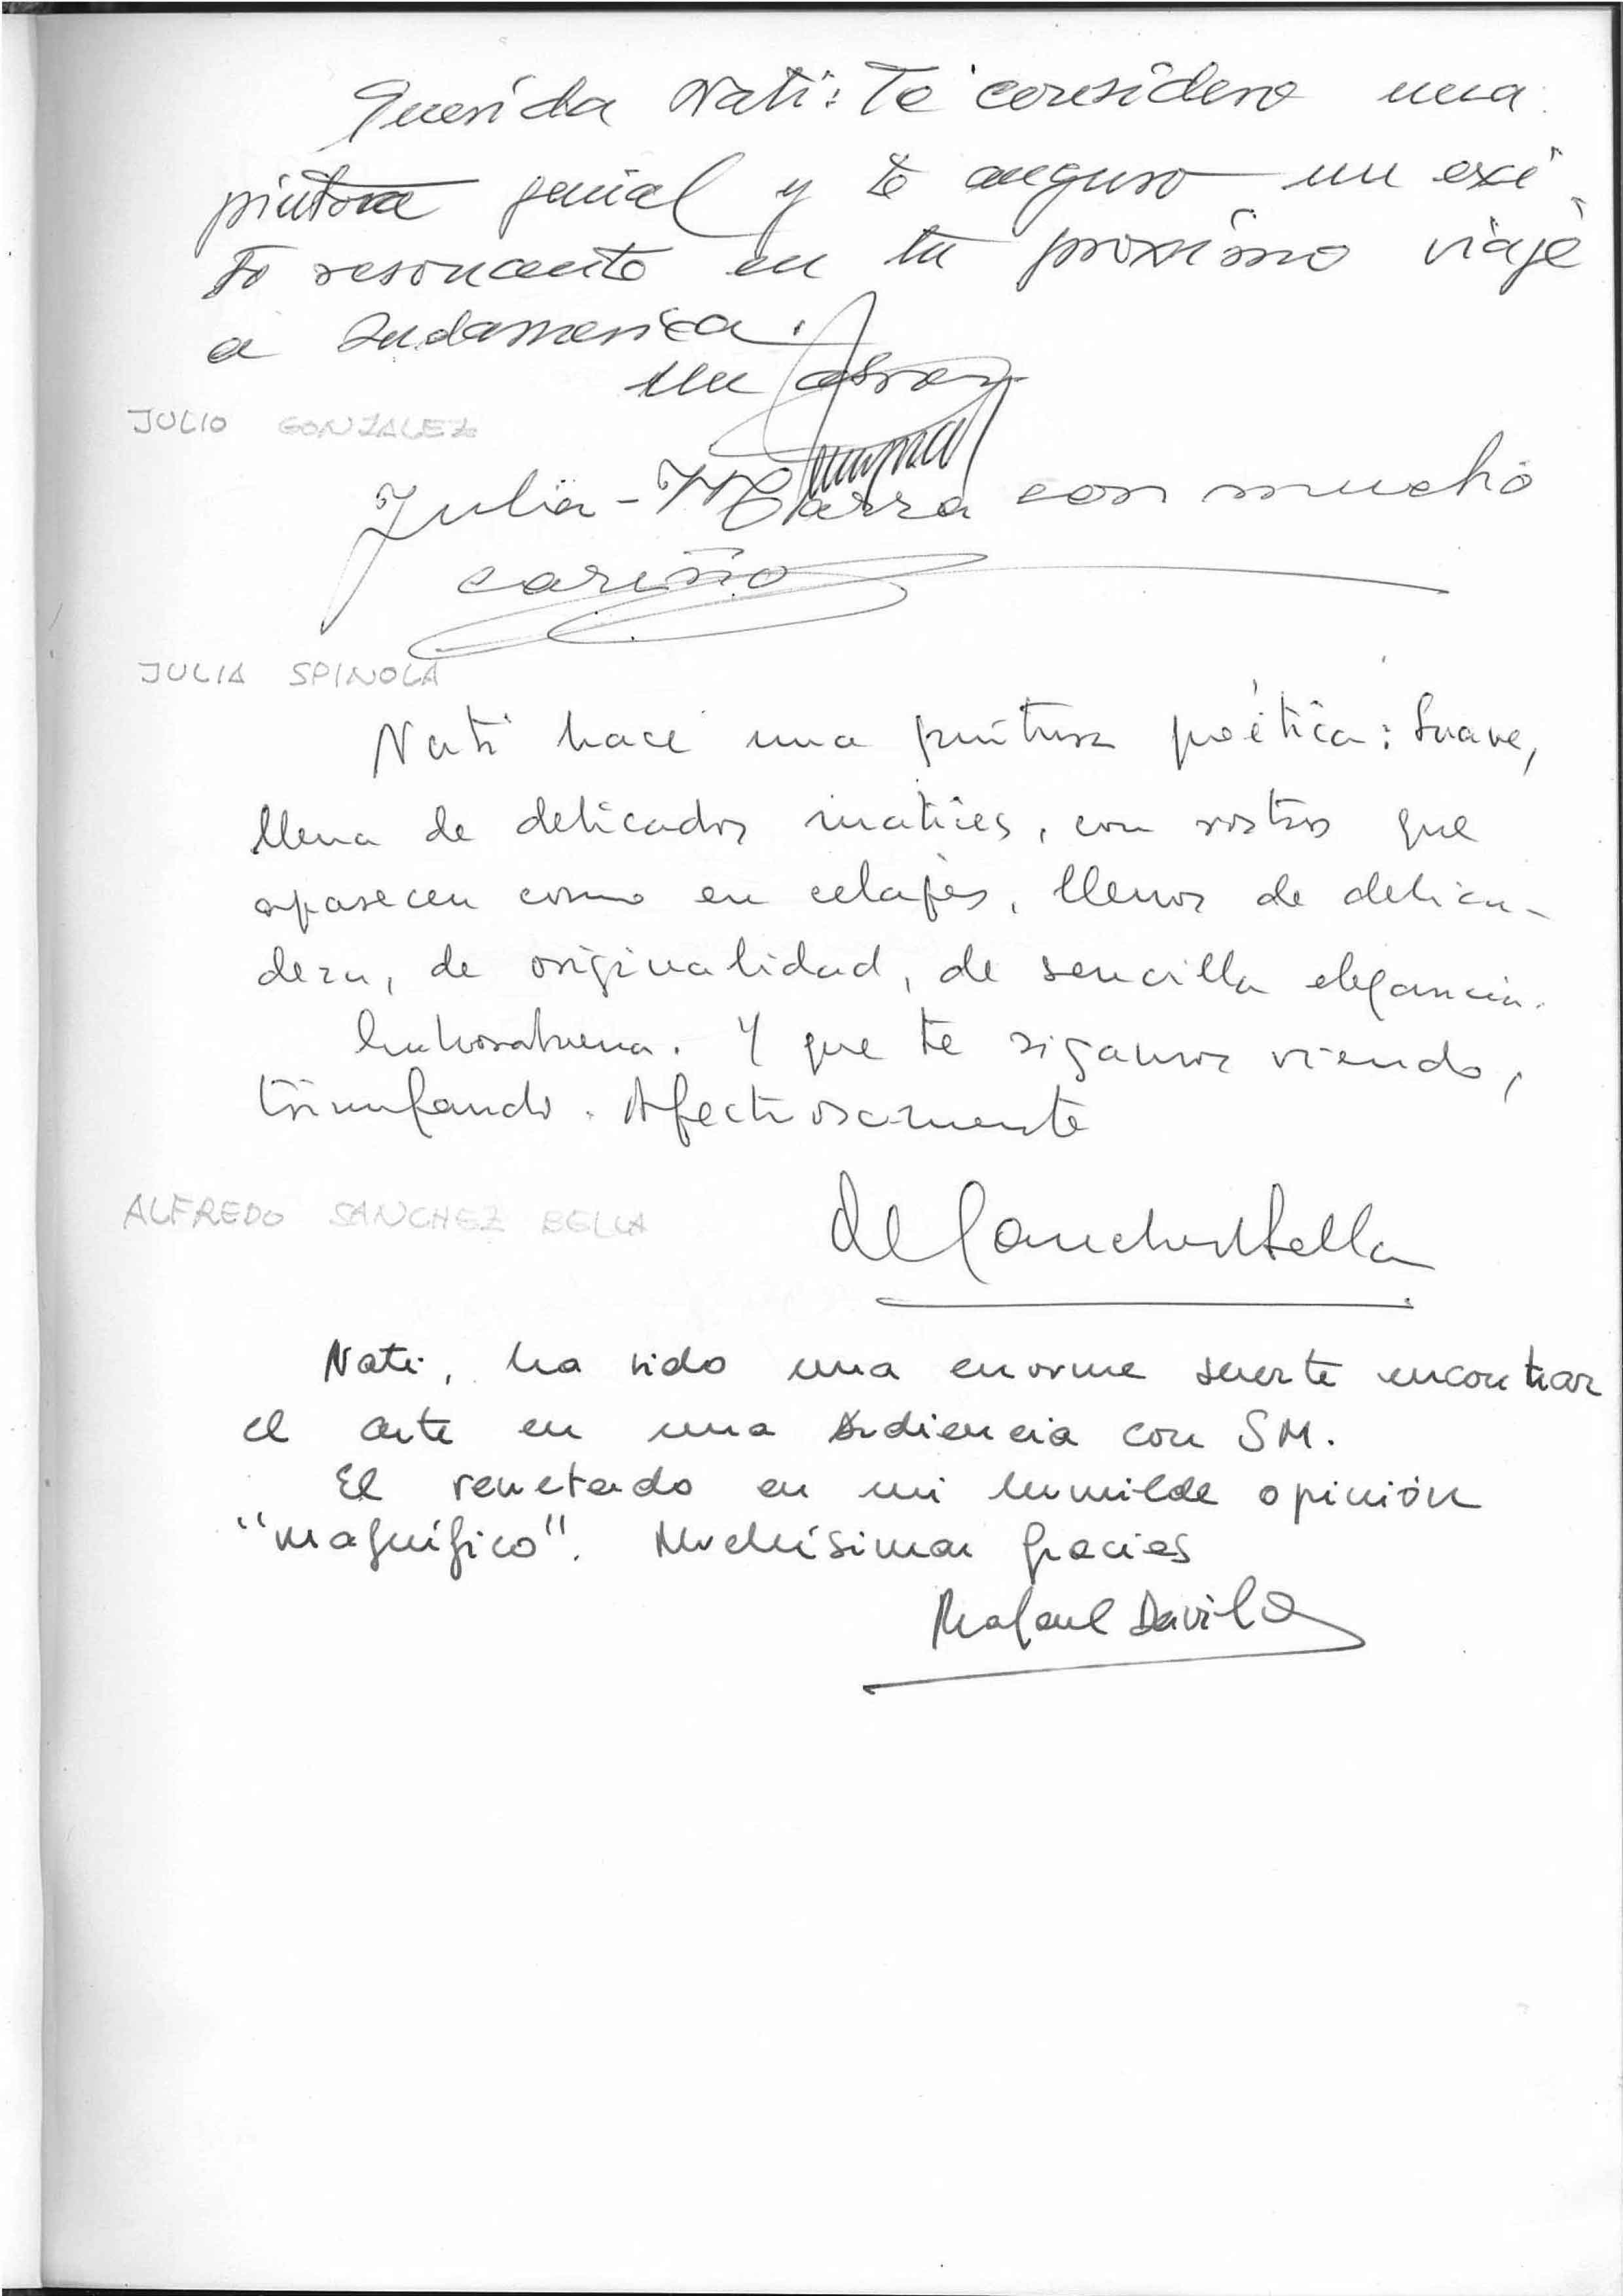 Querida Nati: Te considero una
pintora genial y te auguro un exi
to resonante en tu proximo viaje
a Sudamerica.
Un abrazo
JULIO GONZALEZ
Julia con mucho
cariño
JULIA SPINOLA
Nati hace una pintura poética: Suave,
llena de delicados matices, con rostros que
aparecen como en celajes, llenos de delica-
deza, de originalidad, de sencilla elegancia.
Enhorabuena. Y que te sigamos viendo,
triunfando. Afectuosamente
ALFREDO SANCHEZ BELLA
Sanchez Bella
Nati, ha sido una enorme suerte encontrar
el arte en una audiencia con SM.
El resultado en mi humilde opinión
"magnífico". Muchísimas gracias
Rafael Davila